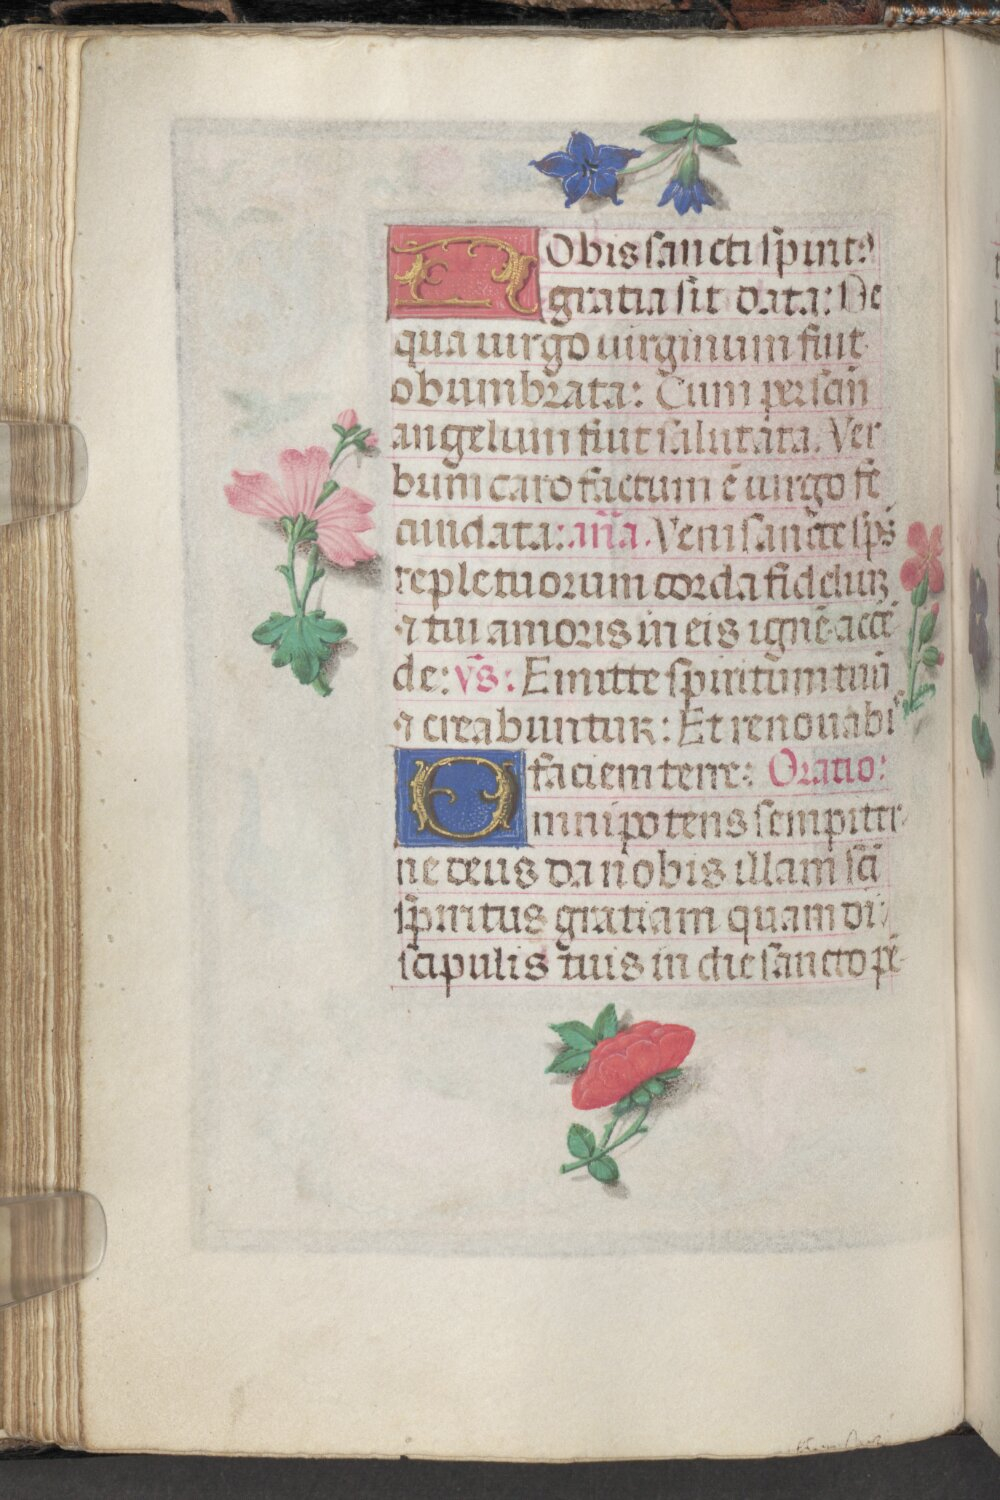 Nobis sancti spirit᷒
gratia sit data: De
qua uirgo uirginum fuit
obumbrata: Cum per scm̄
angelum fuit salutata. Ver
bum caro factum ē uirgo fe
cundata: an̄a. Veni sancte sp̄s
reple tuorum corda fideliuꝫ
⁊ tui amoris in eis ignē accē
de: v̄s: Emitte spiritūm tuū
⁊ creabuntur: Et renouabi
faciem terre: Oratio:
Omnipotens sempiter
ne deus da nobis illam sc̄i
sp̄iritus gratiam quam di
scipulis tuis in die sancto pē